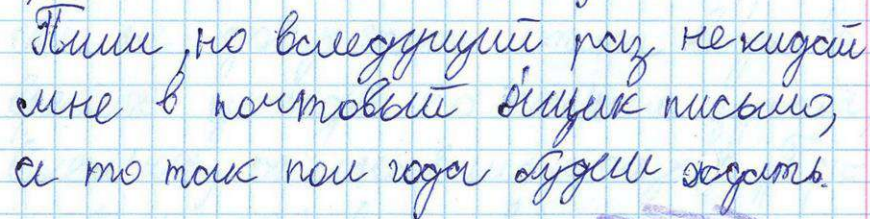 Пиши, но вследущий раз не кидай
мне в почтовый ящик письмо,
а то так пол года будем ждать.